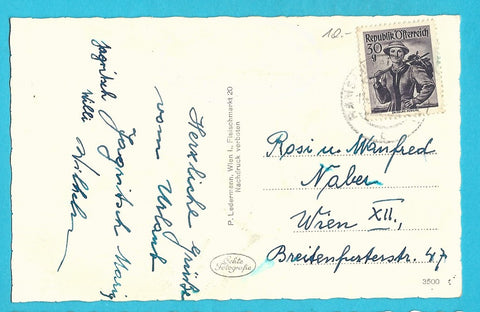 Herzliche Grüße
vom Urlaub
Jagritsch Marig
Wilhelm
Jagritsch
Willi
P. Ledermann, Wien I., Fleischmarkt 20
Nachdruck verboten
Echte
Fotografie
10.-
Republik Österreich
30
g
Rosi u. Manfred
Naber
Wien XII.,
Breitenfurterstr. 47
3503